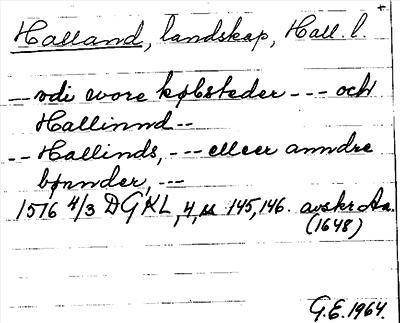 +
Halland, landskap, Hall. l.
— vdi wore købsteder --- och
Hallinnd --
-- Hallinds, --- elleer anndre
bønnder, ---
1576 4/3 DGKL, 4, ss 145, 146. avskr Aa.
(1648)
G.E. 1964.